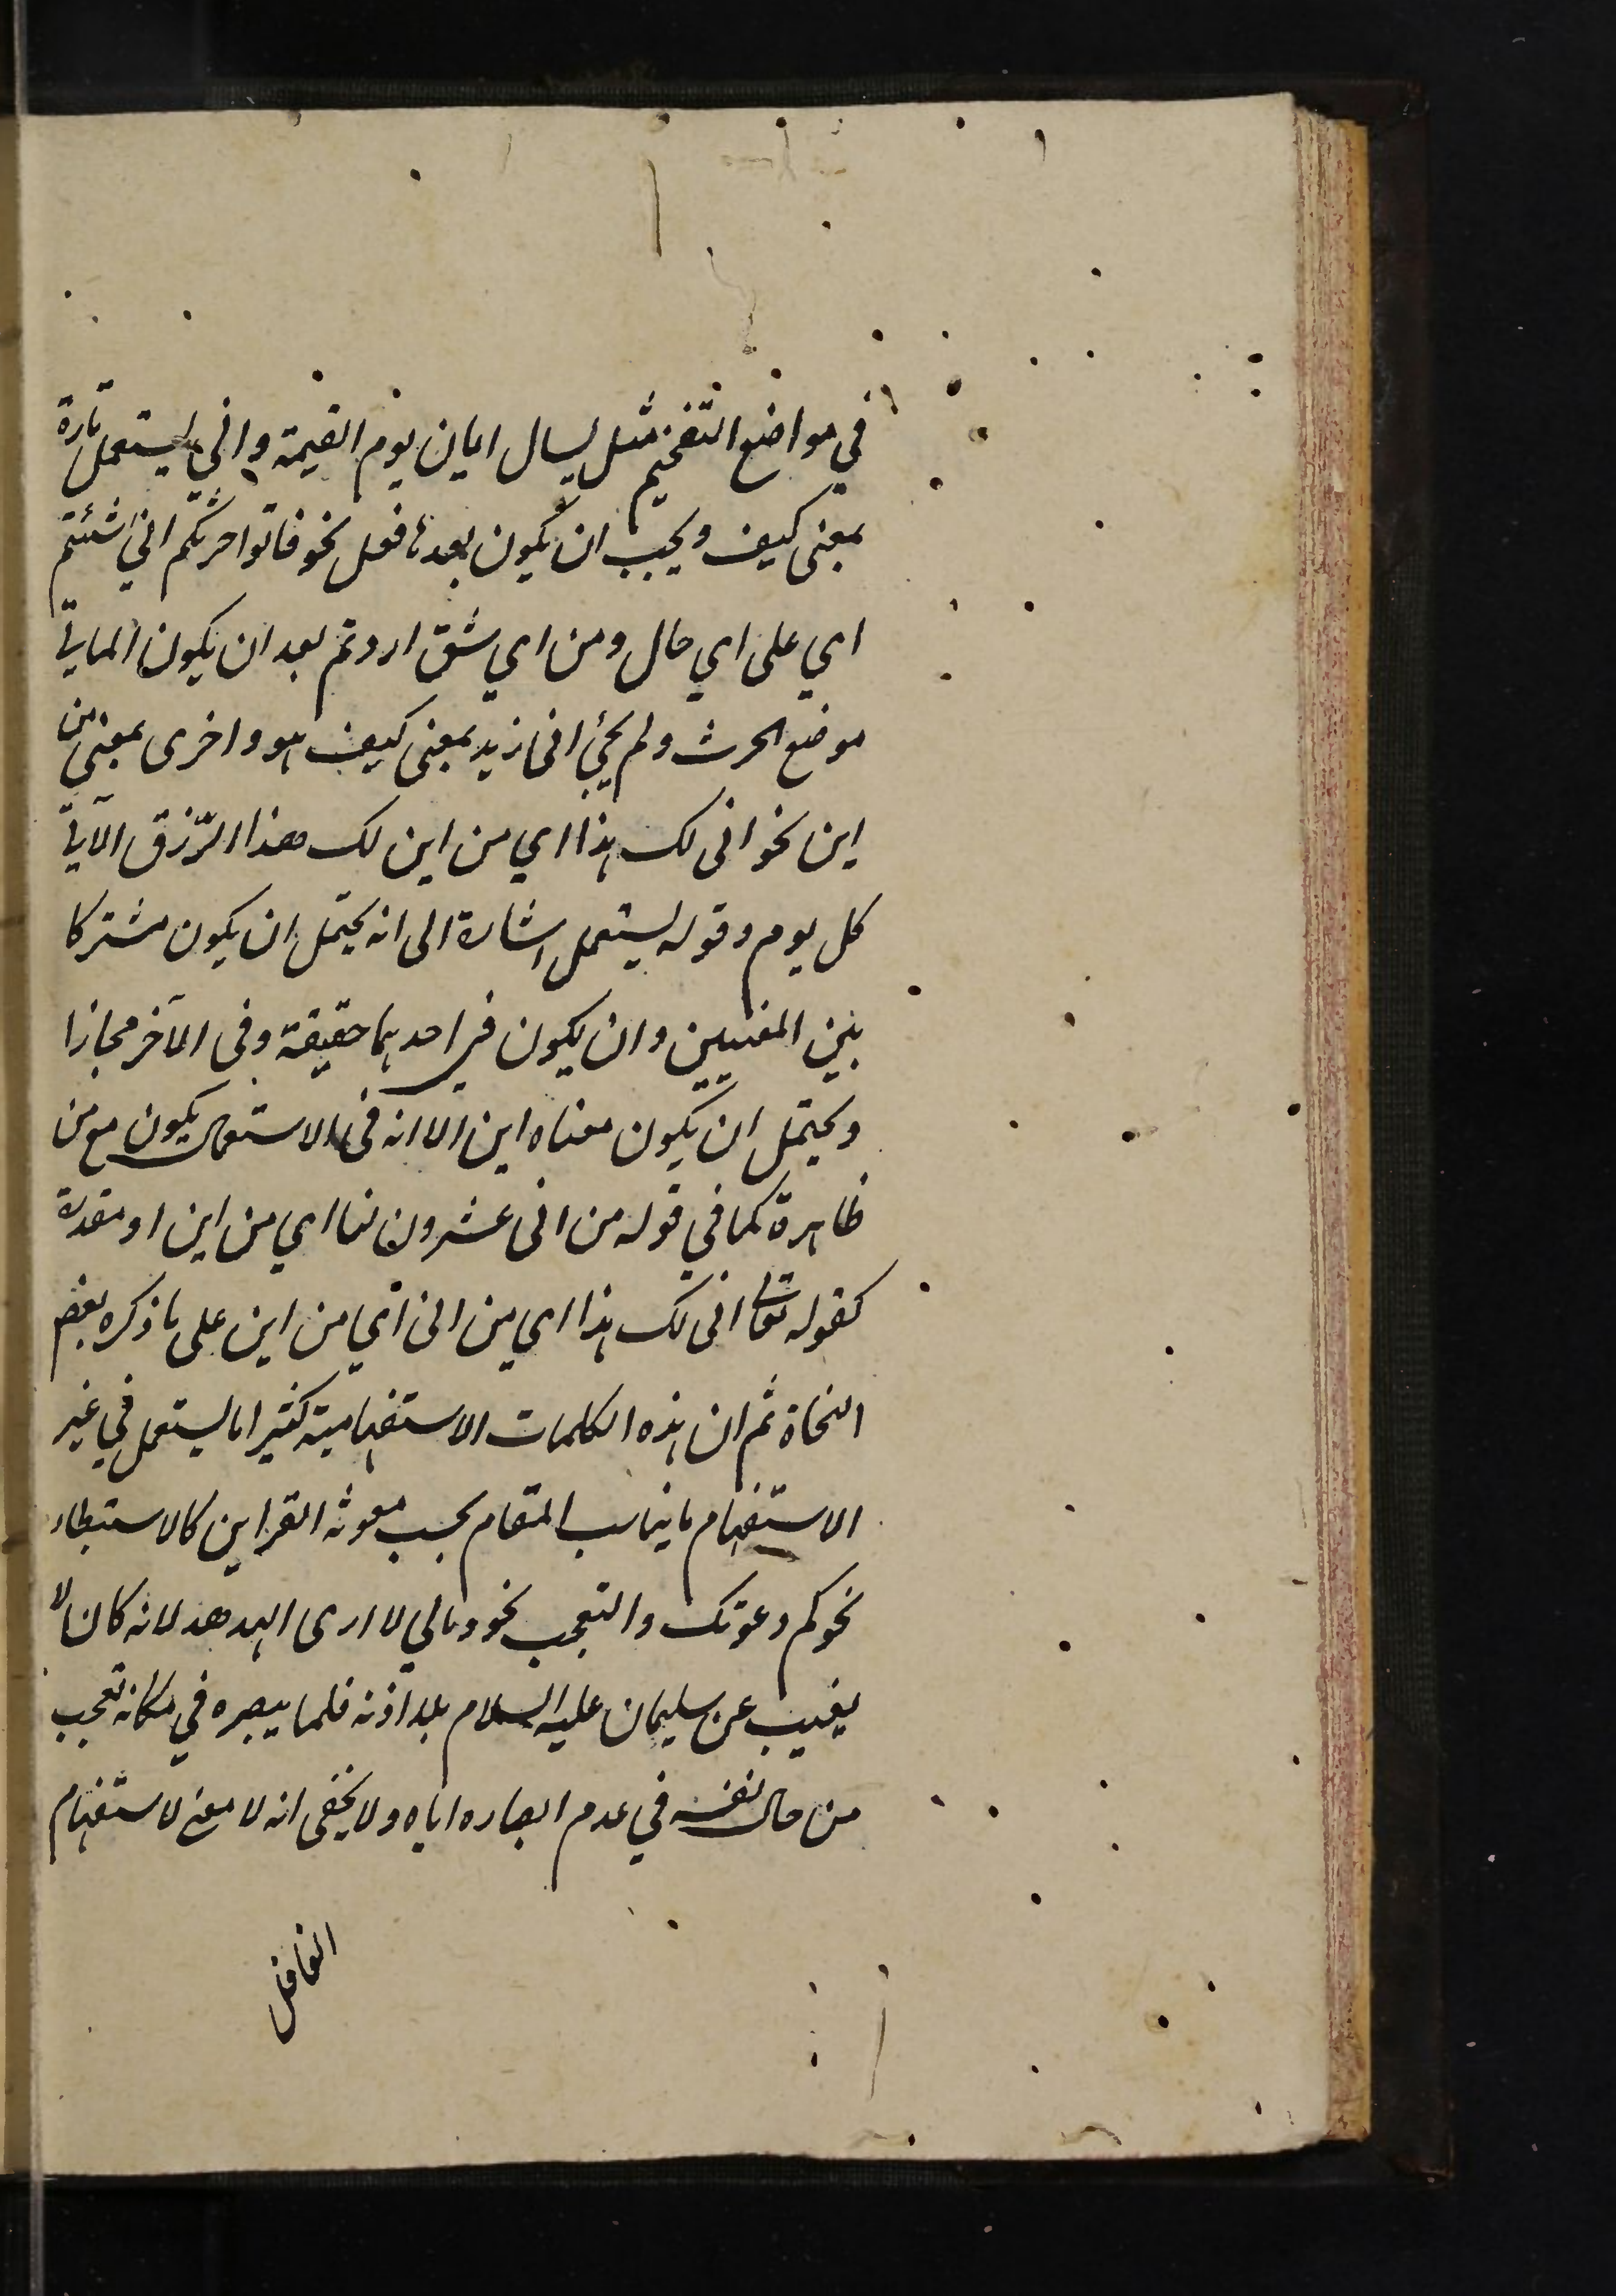 في مواضع التفخيم مثل يسال ايان يوم القيمة وانى يستعمل تارة
بمعنى كيف ويجب ان يكون بعدها فعل نحو فاتوا حرثكم انى شئتم
اي على اي حال ومن اي شق اردتم بعد ان يكون الماتي
موضع الحرث ولم يجئ انى زيد بمعنى كيف هو واخرى بمعنى من
اين نحو انى لك هذا اي من اين لك هذا الرّزق الآتي
كل يوم وقوله يستعمل اشارة الى انه يحتمل ان يكون مشتركا
بين المعنيين وان يكون في احدهما حقيقة وفى الآخر مجازا
ويحتمل ان يكون معناه اين الا انه فى الاستعمال يكون مع من
ظاهرة كما في قوله من انى عشرون لنا اي من اين او مقدرة
كقوله تعالى انى لك هذا اي من انى اي من اين على ما ذكره بعض
النحاة ثم ان هذه الكلمات الاستفهامية كثيرا ما يستعمل في غير
الاستفهام ما يناسب المقام بحسب معونة القراين كالاستبطاء
نحو كم دعوتك والتعجب نحو ومالي لا ارى الهدهد لانه كان لا
يغيب عن سليمان عليه السلام بلا اذنه فلما يبصره في مكانه تعجب
من حال نفسه في عدم ابصاره اياه ولا يخفى انه لا معنى لاستفهام
العاقل